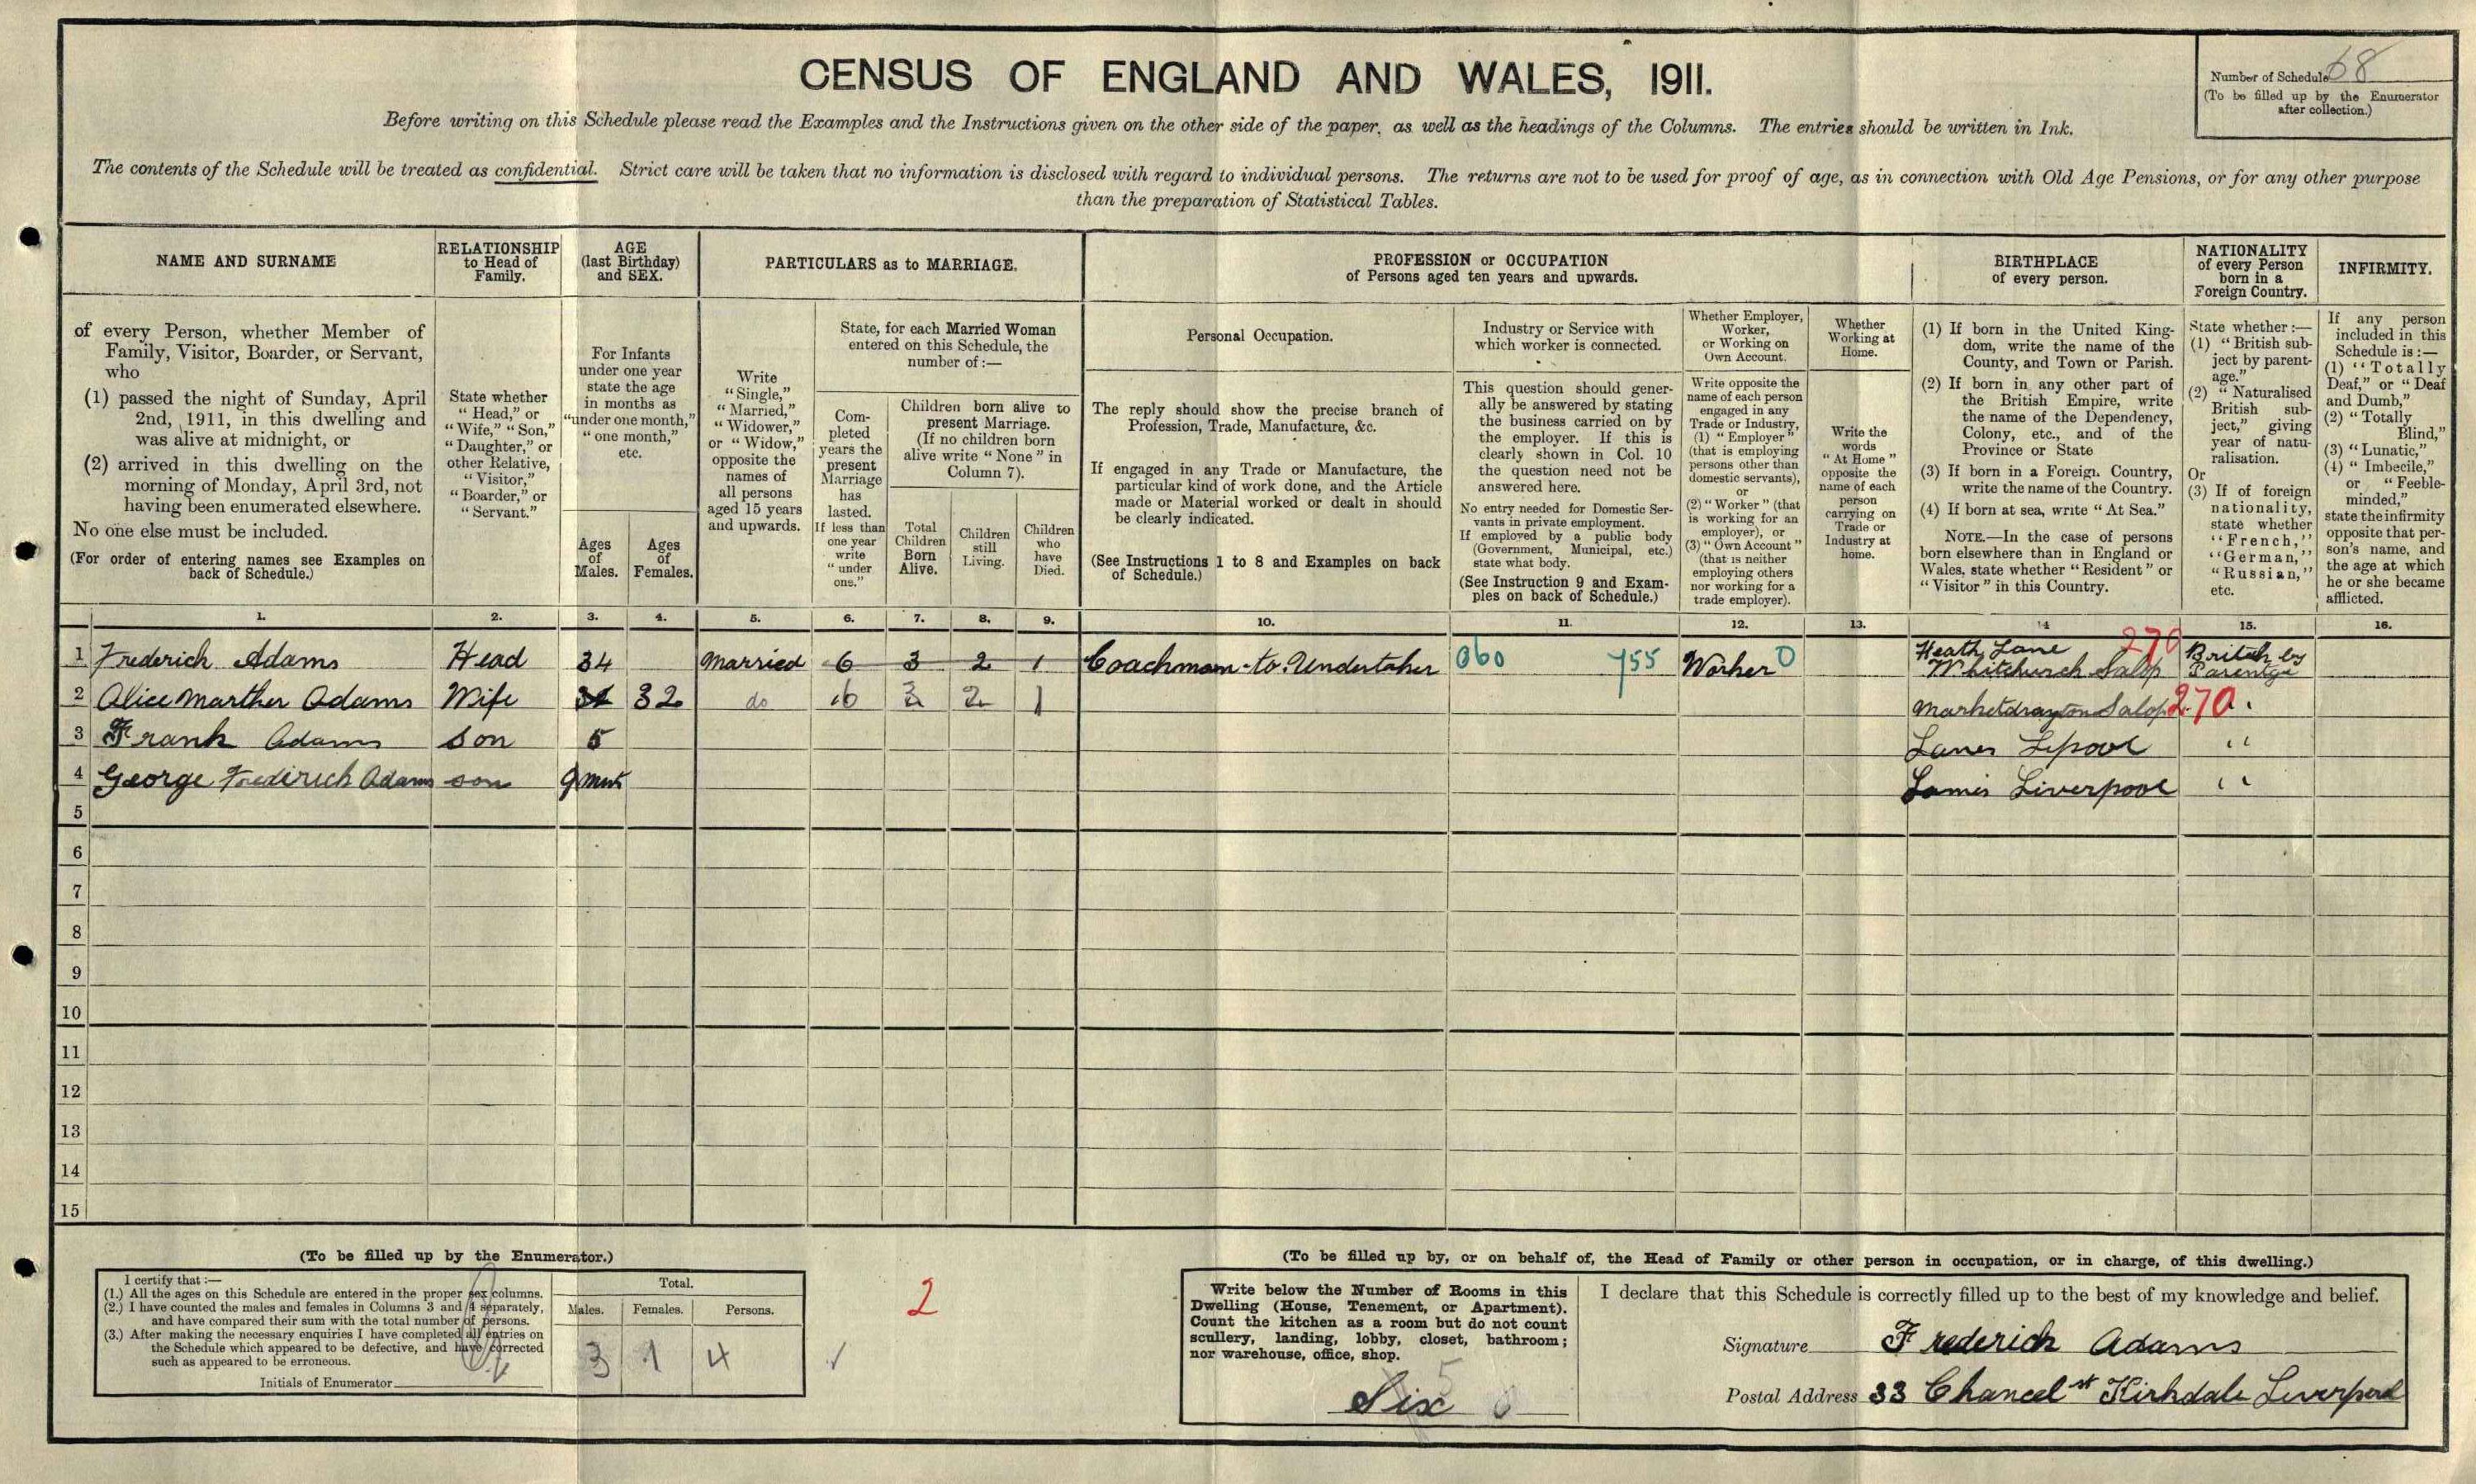 CENSUS OF ENGLAND AND WALES, 1911.
Number of Schedule 68
(To be filled up by the Enumerator
after collection.)
Before writing on this Schedule please read the Examples and the Instructions given on the other side of the paper, as well as the headings of the Columns. The entries should be written in Ink.
The contents of the Schedule will be treated as confidential. Strict care will be taken that no information is disclosed with regard to individual persons. The returns are not to be used for proof of age, as in connection with Old Age Pensions, or for any other purpose
than the preparation of Statistical Tables.
NAME AND SURNAME
of every Person, whether Member of
Family, Visitor, Boarder, or Servant,
who
(1) passed the night of Sunday, April
2nd, 1911, in this dwelling and
was alive at midnight, or
(2) arrived in this dwelling on the
morning of Monday, April 3rd, not
having been enumerated elsewhere.
No one else must be included.
(For order of entering names see Examples on
back of Schedule.)
RELATIONSHIP
to Head of
Family.
State whether
"Head," or
"Wife," "Son,"
"Daughter," or
other Relative,
"Visitor,"
"Boarder," or
"Servant."
AGE
(last Birthday)
and SEX.
For Infants
under one year
state the age
in months as
"under one month,"
"one month,"
etc.
Ages
of
Males.
Ages
of
Females.
PARTICULARS as to MARRIAGE.
Write
"Single,"
"Married,"
"Widower,"
or "Widow,"
opposite the
names of
all persons
aged 15 years
and upwards.
State, for each Married Woman
entered on this Schedule, the
number of :—
Com-
pleted
years the
present
Marriage
has
lasted.
If less than
one year
write
"under
one."
Children born alive to
present Marriage.
(If no children born
alive write "None" in
Column 7).
Total
Children
Born
Alive.
Children
still
Living.
Children
who
have
Died.
PROFESSION or OCCUPATION
of Persons aged ten years and upwards.
Personal Occupation.
The reply should show the precise branch of
Profession, Trade, Manufacture, &c.
If engaged in any Trade or Manufacture, the
particular kind of work done, and the Article
made or Material worked or dealt in should
be clearly indicated.
(See Instructions 1 to 8 and Examples on back
of Schedule.)
Industry or Service with
which worker is connected.
This question should gener-
ally be answered by stating
the business carried on by
the employer. If this is
clearly shown in Col. 10
the question need not be
answered here.
No entry needed for Domestic Ser-
vants in private employment.
If employed by a public body
(Government, Municipal, etc.)
state what body.
(See Instruction 9 and Exam-
ples on back of Schedule.)
Whether Employer,
Worker,
or Working on
Own Account.
Write opposite the
name of each person
engaged in any
Trade or Industry,
(1) "Employer"
(that is employing
persons other than
domestic servants),
or
(2) "Worker" (that
is working for an
employer), or
(3) "Own Account"
(that is neither
employing others
nor working for a
trade employer).
Whether
Working at
Home.
Write the
words
"At Home"
opposite the
name of each
person
carrying on
Trade or
Industry at
home.
BIRTHPLACE
of every person.
(1) If born in the United King-
dom, write the name of the
County, and Town or Parish.
(2) If born in any other part of
the British Empire, write
the name of the Dependency,
Colony, etc., and of the
Province or State
(3) If born in a Foreign Country,
write the name of the Country.
(4) If born at sea, write "At Sea."
NOTE.—In the case of persons
born elsewhere than in England or
Wales, state whether "Resident" or
"Visitor" in this Country.
NATIONALITY
of every Person
born in a
Foreign Country.
State whether :—
(1) "British sub-
ject by parent-
age."
(2) "Naturalised
British sub-
ject," giving
year of natu-
ralisation.
Or
(3) If of foreign
nationality,
state whether
"French,"
"German,"
"Russian,"
etc.
INFIRMITY.
If any person
included in this
Schedule is :—
(1) "Totally
Deaf," or "Deaf
and Dumb,"
(2) "Totally
Blind,"
(3) "Lunatic,"
(4) "Imbecile,"
or "Feeble-
minded,"
state the infirmity
opposite that per-
son's name, and
the age at which
he or she became
afflicted.
1. 2. 3. 4. 5. 6. 7. 8. 9. 10. 11. 12. 13. 14 15. 16.
Heath Lane 270 Britch by
1 Frederich Adams Head 34 Married 6 3 2 1 Coachman to Undertaker 060 755 Worker 0 Whitchurch Salop Parentge
2 Alice Marther Adams Wife 32 do 6 3 2 1 Marketdrayton Salop 270 "
3 Frank Adams Son 5 Lancs Lpool "
4 George Frederich Adams son 9 Mnts Liverpool "
5
6
7
8
9
10
11
12
13
14
15
(To be filled up by the Enumerator.)
I certify that :—
(1.) All the ages on this Schedule are entered in the proper sex columns.
(2.) I have counted the males and females in Columns 3 and 4 separately,
and have compared their sum with the total number of persons.
(3.) After making the necessary enquiries I have completed all entries on
the Schedule which appeared to be defective, and have corrected
such as appeared to be erroneous.
Initials of Enumerator
Total.
Males. Females. Persons.
3 1 4
2
(To be filled up by, or on behalf of, the Head of Family or other person in occupation, or in charge, of this dwelling.)
Write below the Number of Rooms in this
Dwelling (House, Tenement, or Apartment).
Count the kitchen as a room but do not count
scullery, landing, lobby, closet, bathroom;
nor warehouse, office, shop.
Six
I declare that this Schedule is correctly filled up to the best of my knowledge and belief.
Signature Frederich Adams
Postal Address 33 Chancel st Kirkdale Liverpool